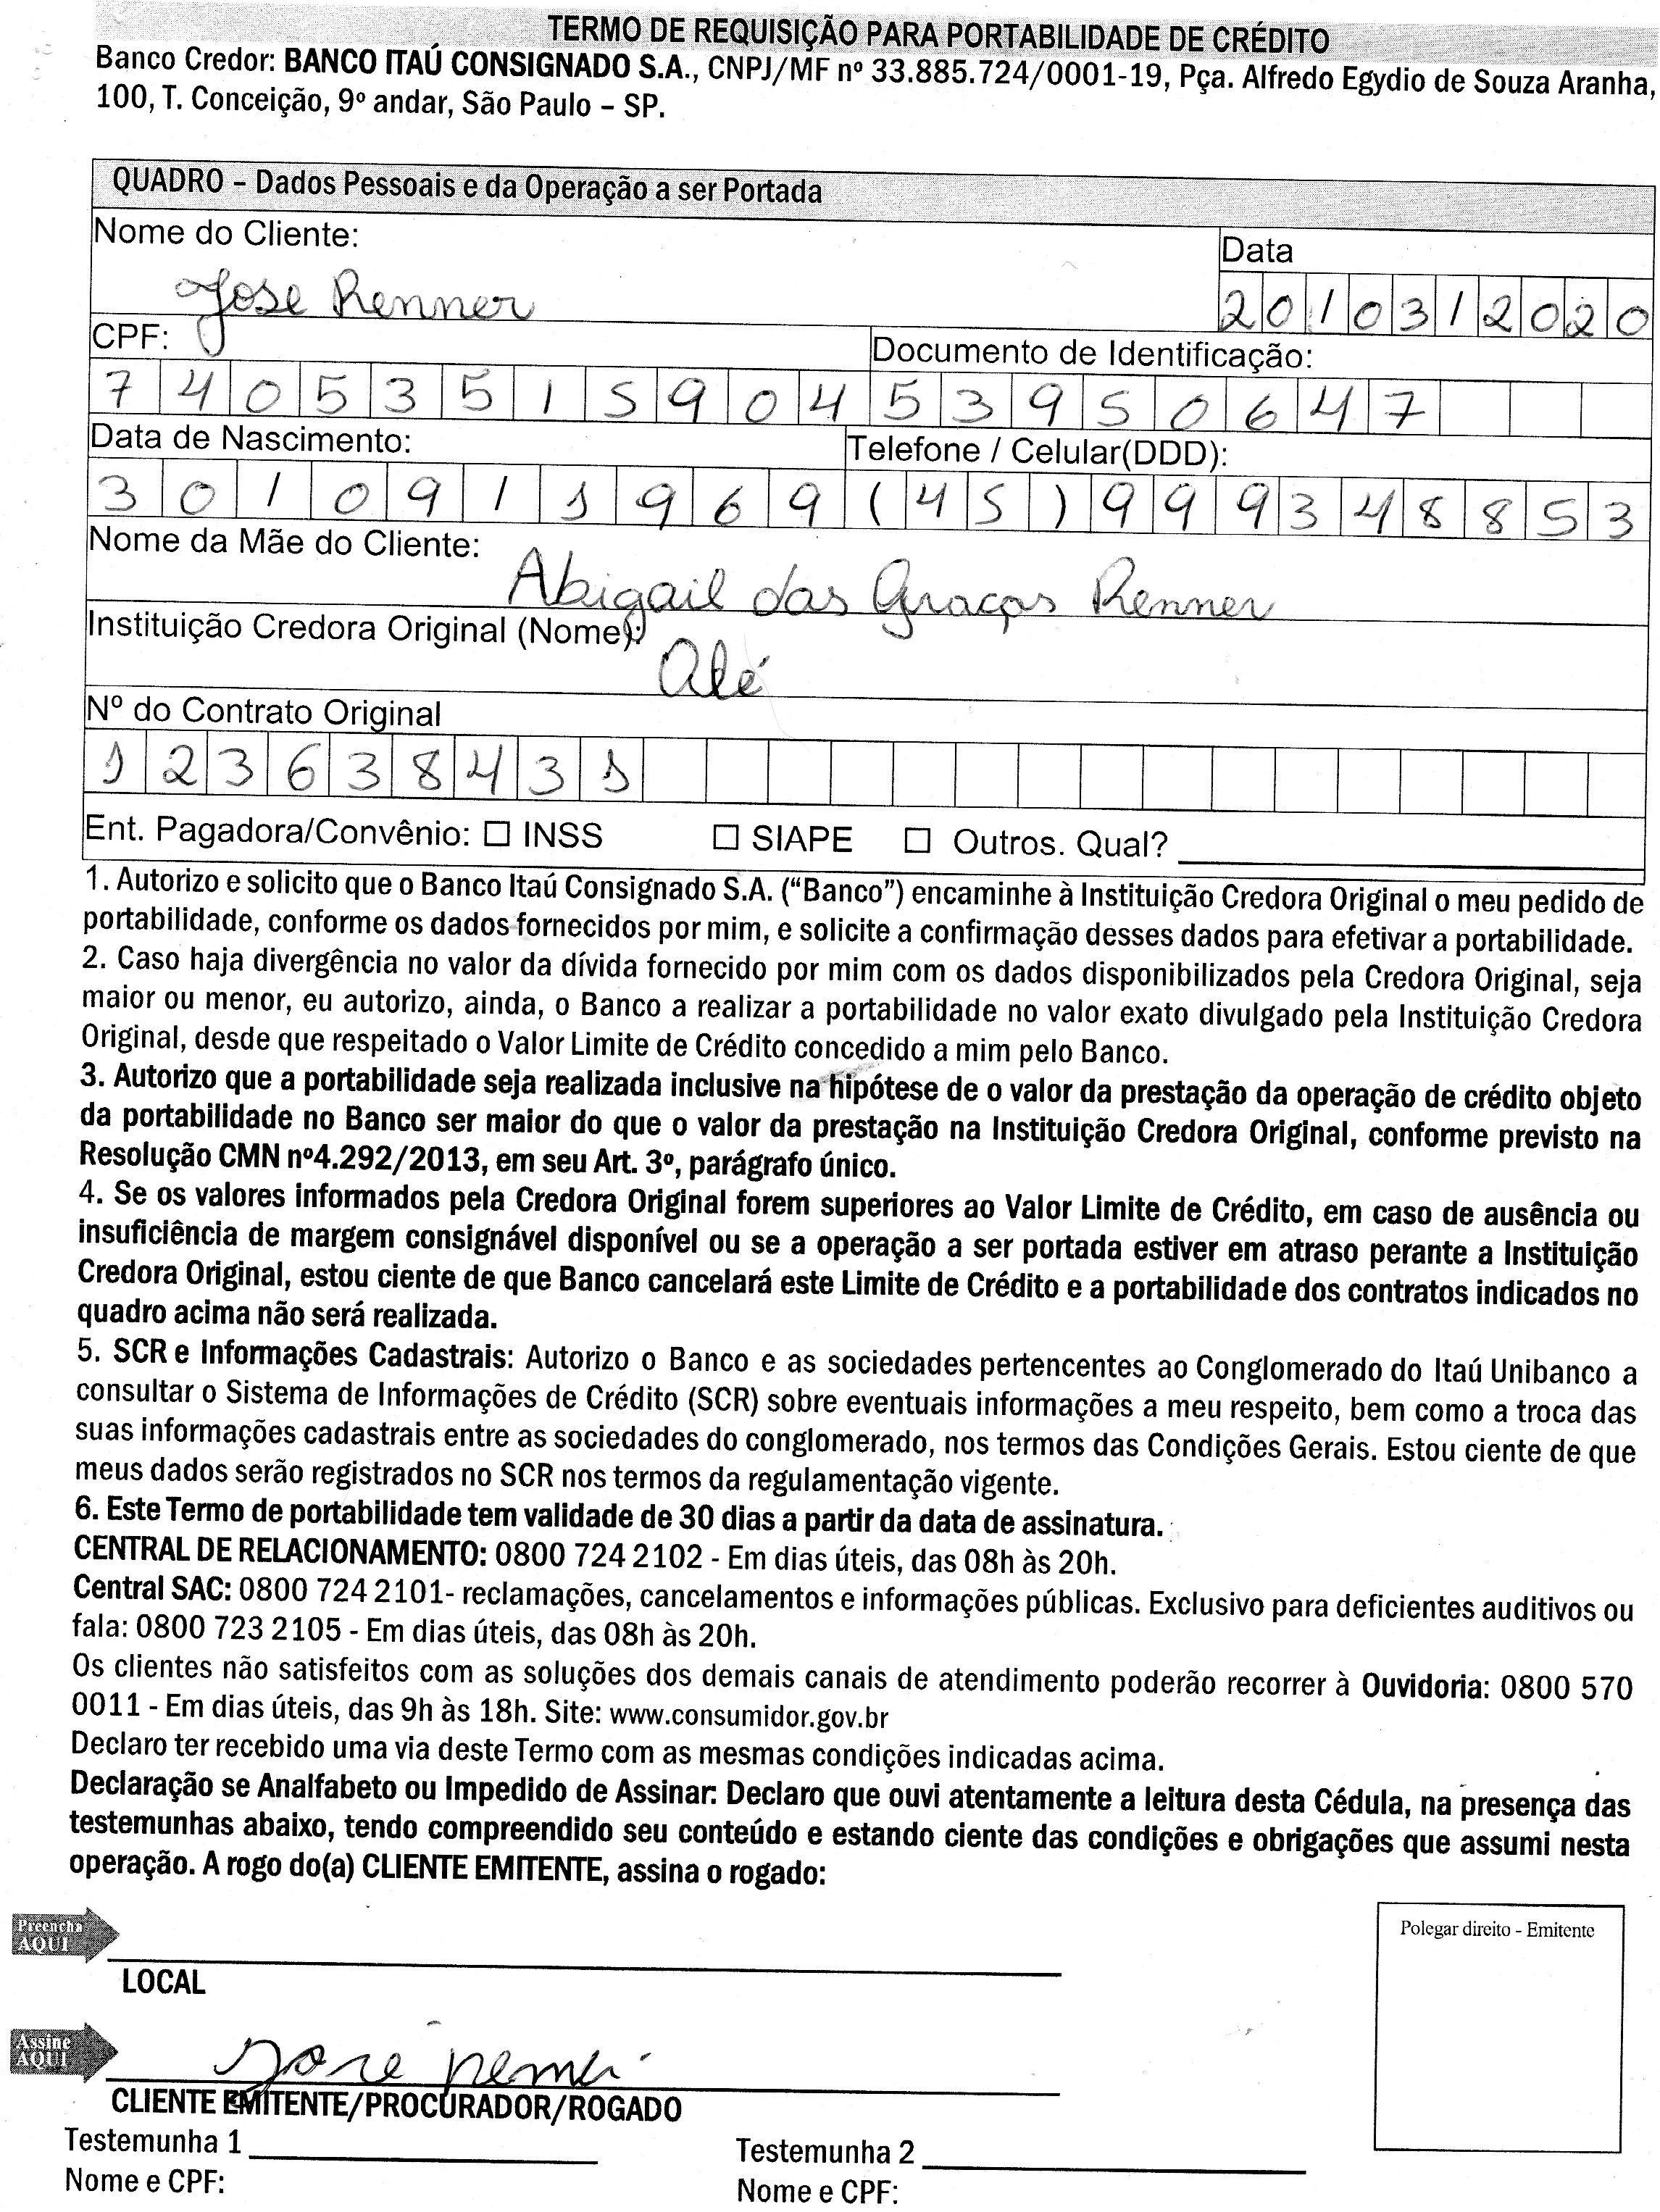 TERMO DE REQUISIÇÃO PARA PORTABILIDADE DE CRÉDITO
Banco Credor: BANCO ITAÚ CONSIGNADO S.A., CNPJ/MF nº 33.885.724/0001-19, Pça. Alfredo Egydio de Souza Aranha,
100, T. Conceição, 9º andar, São Paulo – SP.
QUADRO – Dados Pessoais e da Operação a ser Portada
Nome do Cliente:
Jose Renner
Data
20/03/2020
CPF:
74053515904
Documento de Identificação:
53950647
Data de Nascimento:
30/09/1969
Telefone / Celular(DDD):
(45)999348853
Nome da Mãe do Cliente:
Abigail das Graças Renner
Instituição Credora Original (Nome):
Olé
Nº do Contrato Original
123638431
Ent. Pagadora/Convênio: ☐ INSS ☐ SIAPE ☐ Outros. Qual?
1. Autorizo e solicito que o Banco Itaú Consignado S.A. (“Banco”) encaminhe à Instituição Credora Original o meu pedido de
portabilidade, conforme os dados fornecidos por mim, e solicite a confirmação desses dados para efetivar a portabilidade.
2. Caso haja divergência no valor da dívida fornecido por mim com os dados disponibilizados pela Credora Original, seja
maior ou menor, eu autorizo, ainda, o Banco a realizar a portabilidade no valor exato divulgado pela Instituição Credora
Original, desde que respeitado o Valor Limite de Crédito concedido a mim pelo Banco.
3. Autorizo que a portabilidade seja realizada inclusive na hipótese de o valor da prestação da operação de crédito objeto
da portabilidade no Banco ser maior do que o valor da prestação na Instituição Credora Original, conforme previsto na
Resolução CMN nº4.292/2013, em seu Art. 3º, parágrafo único.
4. Se os valores informados pela Credora Original forem superiores ao Valor Limite de Crédito, em caso de ausência ou
insuficiência de margem consignável disponível ou se a operação a ser portada estiver em atraso perante a Instituição
Credora Original, estou ciente de que Banco cancelará este Limite de Crédito e a portabilidade dos contratos indicados no
quadro acima não será realizada.
5. SCR e Informações Cadastrais: Autorizo o Banco e as sociedades pertencentes ao Conglomerado do Itaú Unibanco a
consultar o Sistema de Informações de Crédito (SCR) sobre eventuais informações a meu respeito, bem como a troca das
suas informações cadastrais entre as sociedades do conglomerado, nos termos das Condições Gerais. Estou ciente de que
meus dados serão registrados no SCR nos termos da regulamentação vigente.
6. Este Termo de portabilidade tem validade de 30 dias a partir da data de assinatura.
CENTRAL DE RELACIONAMENTO: 0800 724 2102 - Em dias úteis, das 08h às 20h.
Central SAC: 0800 724 2101- reclamações, cancelamentos e informações públicas. Exclusivo para deficientes auditivos ou
fala: 0800 723 2105 - Em dias úteis, das 08h às 20h.
Os clientes não satisfeitos com as soluções dos demais canais de atendimento poderão recorrer à Ouvidoria: 0800 570
0011 - Em dias úteis, das 9h às 18h. Site: www.consumidor.gov.br
Declaro ter recebido uma via deste Termo com as mesmas condições indicadas acima.
Declaração se Analfabeto ou Impedido de Assinar: Declaro que ouvi atentamente a leitura desta Cédula, na presença das
testemunhas abaixo, tendo compreendido seu conteúdo e estando ciente das condições e obrigações que assumi nesta
operação. A rogo do(a) CLIENTE EMITENTE, assina o rogado:
Preencha
AQUI
LOCAL
Polegar direito - Emitente
Assine
AQUI
José
CLIENTE EMITENTE/PROCURADOR/ROGADO
Testemunha 1
Testemunha 2
Nome e CPF:
Nome e CPF: